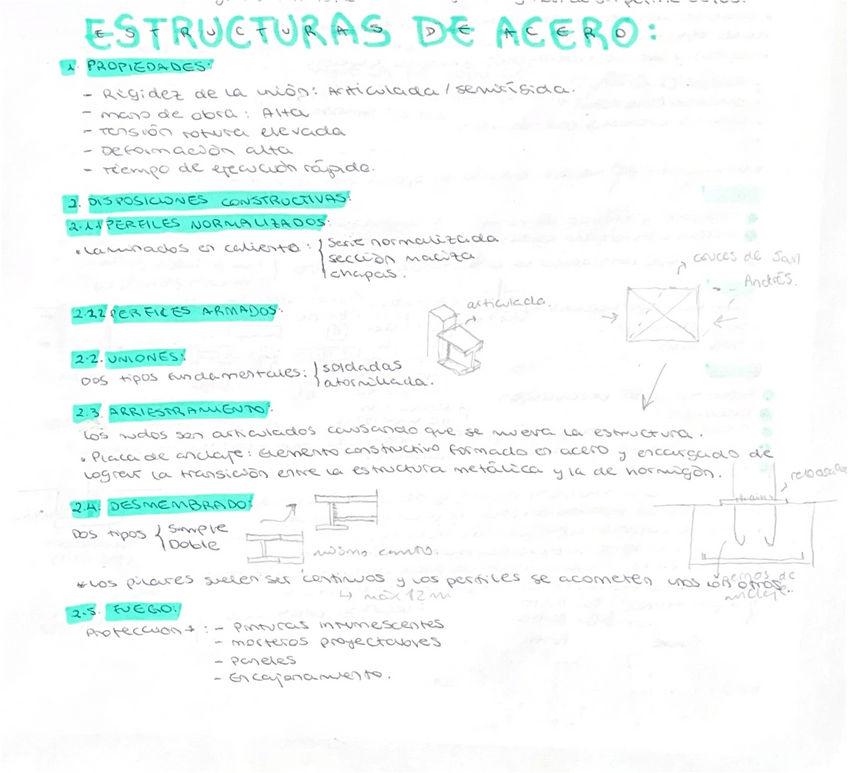 ESTRUCTURAS DE ACERO:
1. PROPIEDADES:
- Rigidez de la unión: Articulada / semirígida.
- mano de obra: Alta
- Tensión rotura elevada
- Deformación alta
- Tiempo de ejecución rápido.
2. DISPOSICIONES CONSTRUCTIVAS:
2.1.1 PERFILES NORMALIZADOS:
• Laminados en caliente: { Serie normalizada
sección maciza
chapas.
cruces de San
Andrés.
articulada.
2.1.2 PERFILES ARMADOS:
2.2. UNIONES:
Dos tipos fundamentales: { soldadas
atornillada.
2.3. ARRIESTRAMIENTO:
Los nudos son articulados causando que se mueva la estructura.
• Placa de anclaje: Elemento constructivo formado en acero y encargado de
lograr la transición entre la estructura metálica y la de hormigón.
2.4. DESMEMBRADO:
Dos tipos { Simple
Doble
mismo canto.
* Los pilares suelen ser continuos y los perfiles se acometen unos con otros.
↳ máx 12 m
Pernos de
anclaje.
2.5. FUEGO:
Protección + : - Pinturas intumescentes
- morteros proyectables
- Paneles
- Encajonamiento.